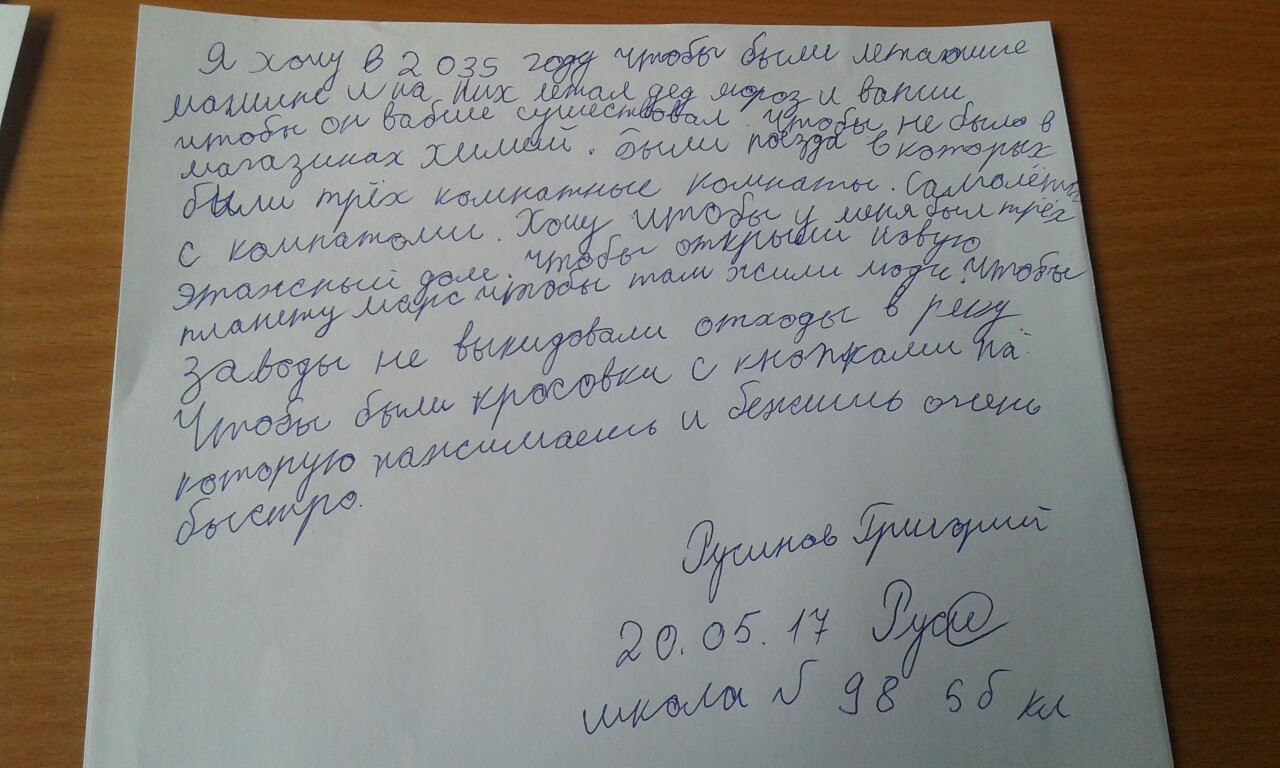 Я хочу в 2035 году чтобы были летаюшие
машине и на них летал дед мороз и вапше
чтобы он вабше сушествовал. Чтобы не было в
магазинах химий. Были поезда в которых
были трёх комнатные комнаты. Самолёты
с компатоми. Хочу чтобы у меня был трёх
этажный дом. Чтобы открыли новую
планету марс чтобы там жили люди. Чтобы
заводы не выкидовали отходы в реку
Чтобы были кросовки с кнопками на
которую нажимаешь и бежишь очень
быстро.
Русинов Григорий
20.05.17 Руси
школа № 98 5б кл